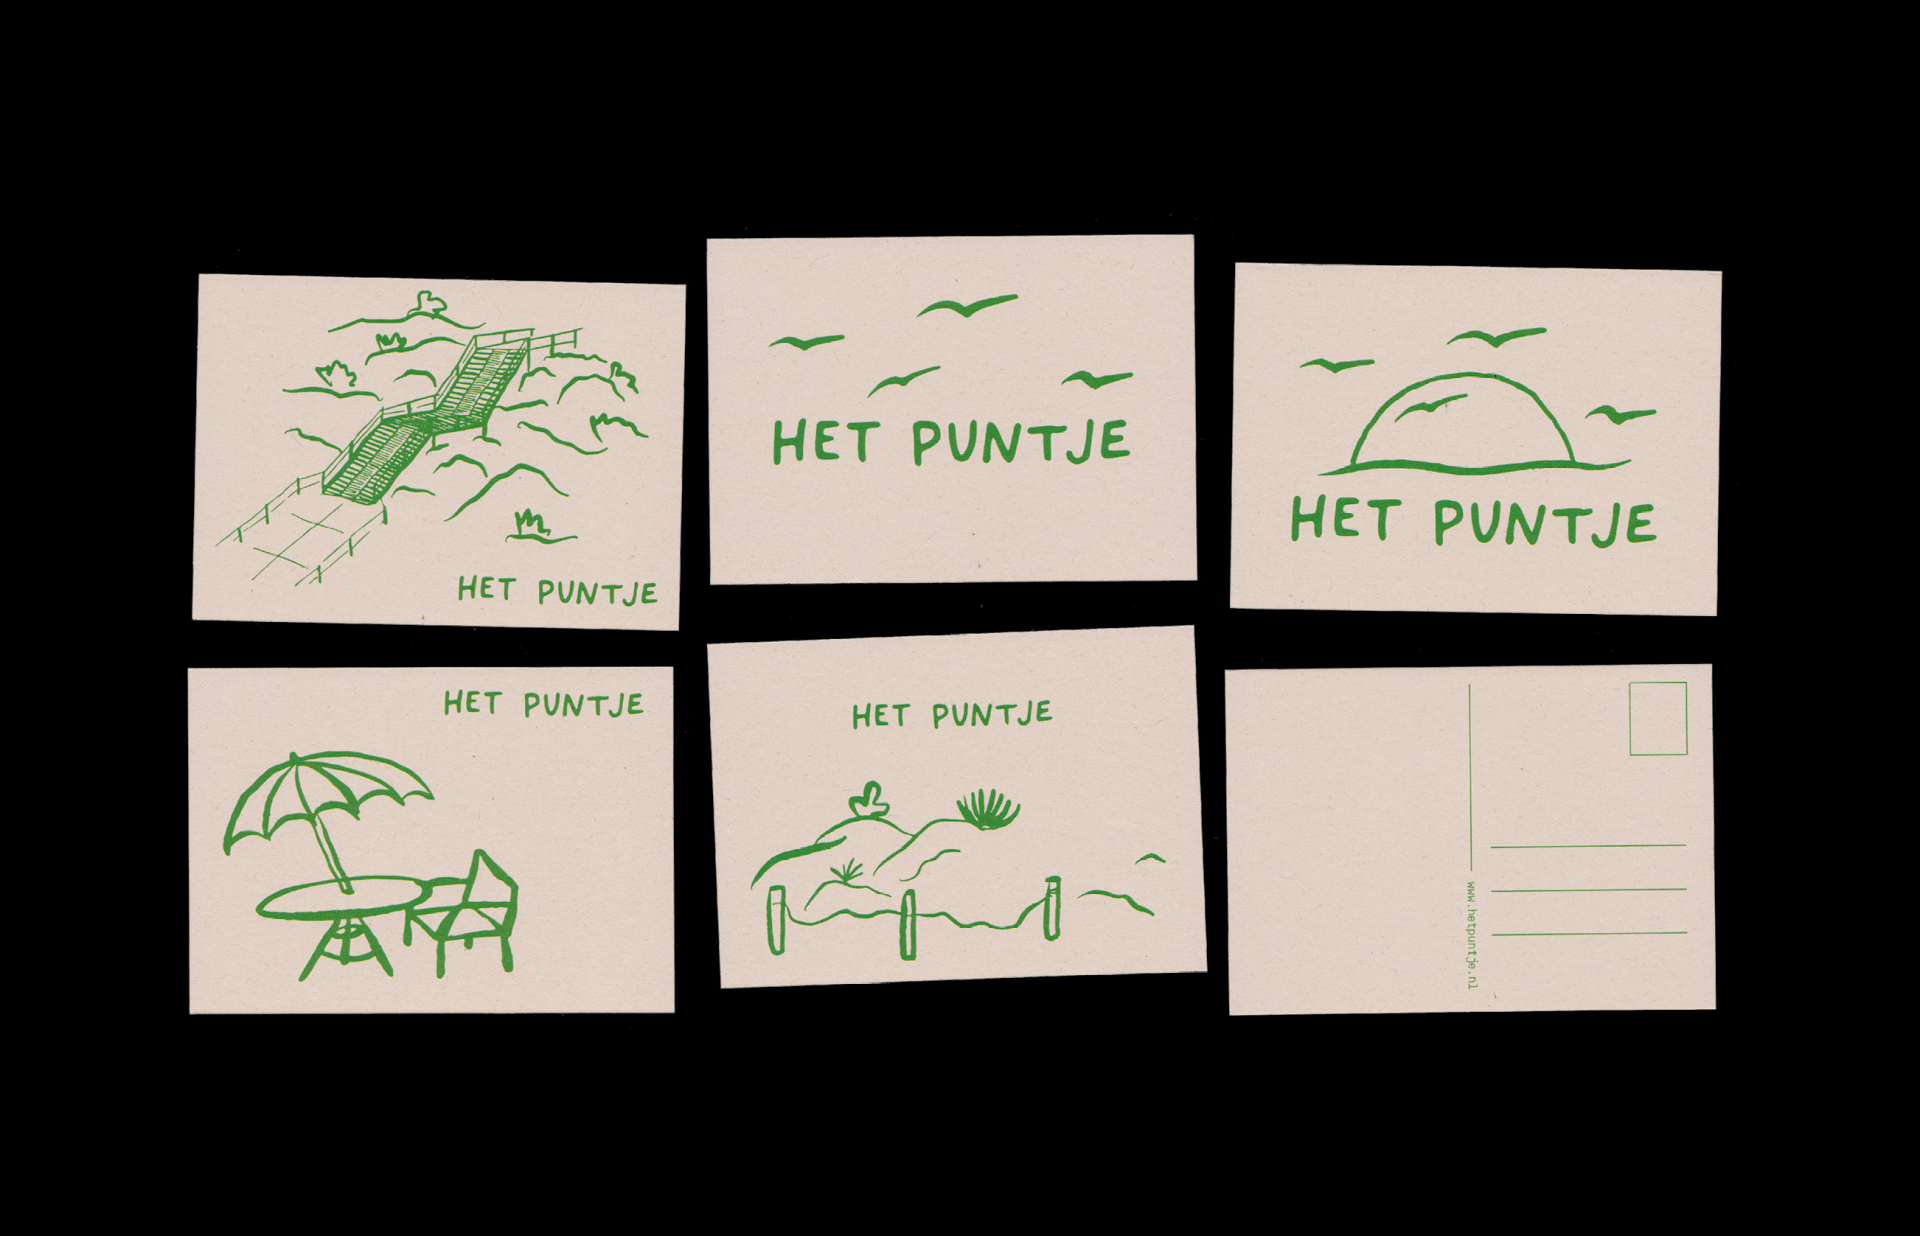 HET PUNTJE
HET PUNTJE
HET PUNTJE
HET PUNTJE
HET PUNTJE
www.hetpuntje.nl